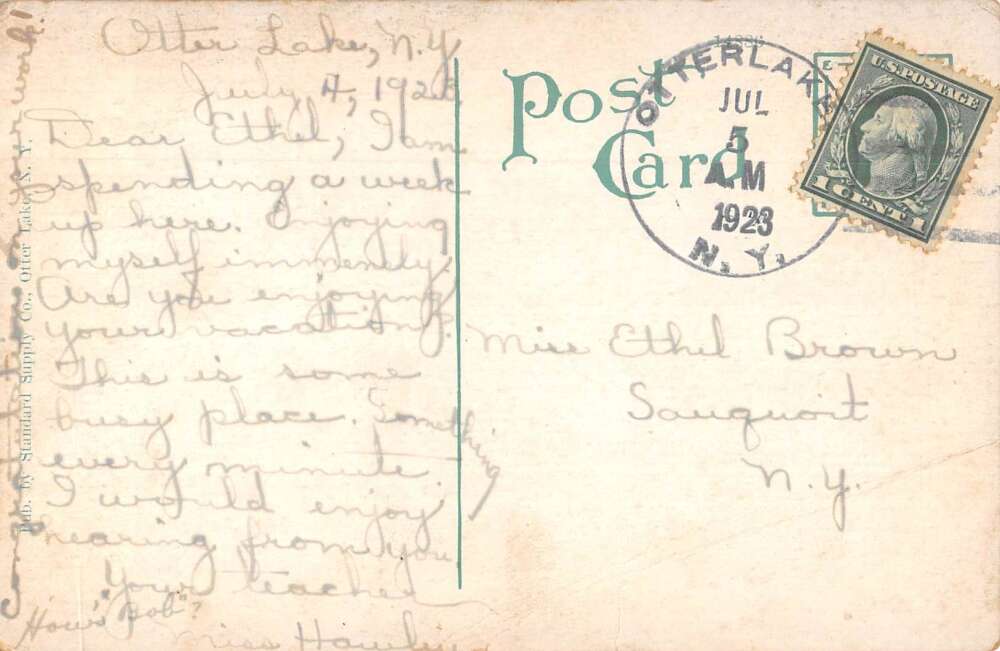 Otter Lake, N.Y.
July 4, 192
Dear Ethel, I am
spending a week
up here. Enjoying
myself immensely.
Are you enjoying
your vacation?
This is some
busy place. Something
every minute
I would enjoy
hearing from you
Your teacher
Miss Hawley
How's "Bob"?
Congratulations on your work!
Pub. by Standard Supply Co., Otter Lake, N. Y.
14286
Post
Card
OTTER LAKE
JUL
5
AM
1923
N.Y.
U.S. POSTAGE
1 CENT 1
Miss Ethel Brown
Sauquoit
N.Y.